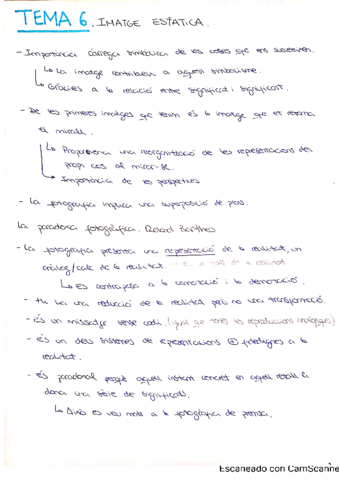 TEMA 6. IMATGE ESTÀTICA.
- Importància càrrega simbòlica de les coses que ens succeeixen.
↳ La imatge contribueix a aquest simbolisme.
↳ Gràcies a la relació entre significat i significant.
- De les primeres imatges que tenim és la imatge que et retorna
el mirall.
↳ Proporciona una reorganització de les representacions del
propi cos al mirar-se.
→ Importància de les perspectives
- La fotografia implica una superposició de plans.
La paradoxa fotogràfica. Roland Barthes.
- La fotografia presenta una representació de la realitat, un
anàleg/calc de la realitat.
↳ Es contraposa a la connotació i la denotació.
- Hi ha una reducció de la realitat però no una transformació.
- És un missatge sense codi. (igual que totes les reproduccions analògiques)
- És un dels sistemes de representacions + fidedignes a la
realitat.
- És paradoxal perquè aquell instant concret en aquell retall li
dona una sèrie de significats.
↳ Això es veu molt a la fotografia de premsa.
Escaneado con CamScanne